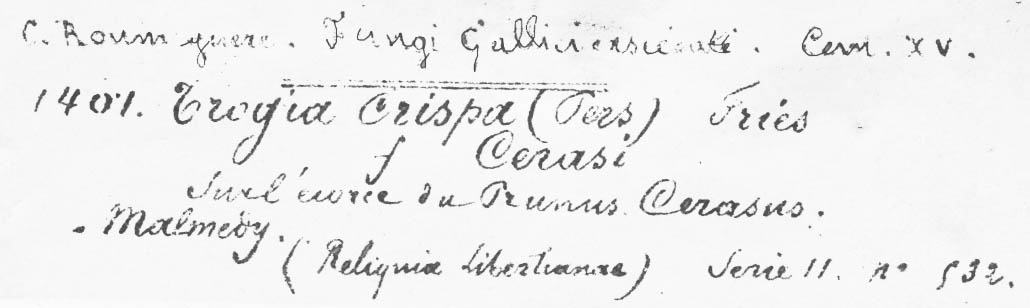 C. Roumeguere. Fungi Gallici exsiccati. Cent. XV.
1401. Trogia Crispa (Pers) Fries
f Cerasi
Sur l'écorce du Prunus Cerasus.
Malmedy.
(Reliquiæ Libertianae) Serie 11. n° 532.